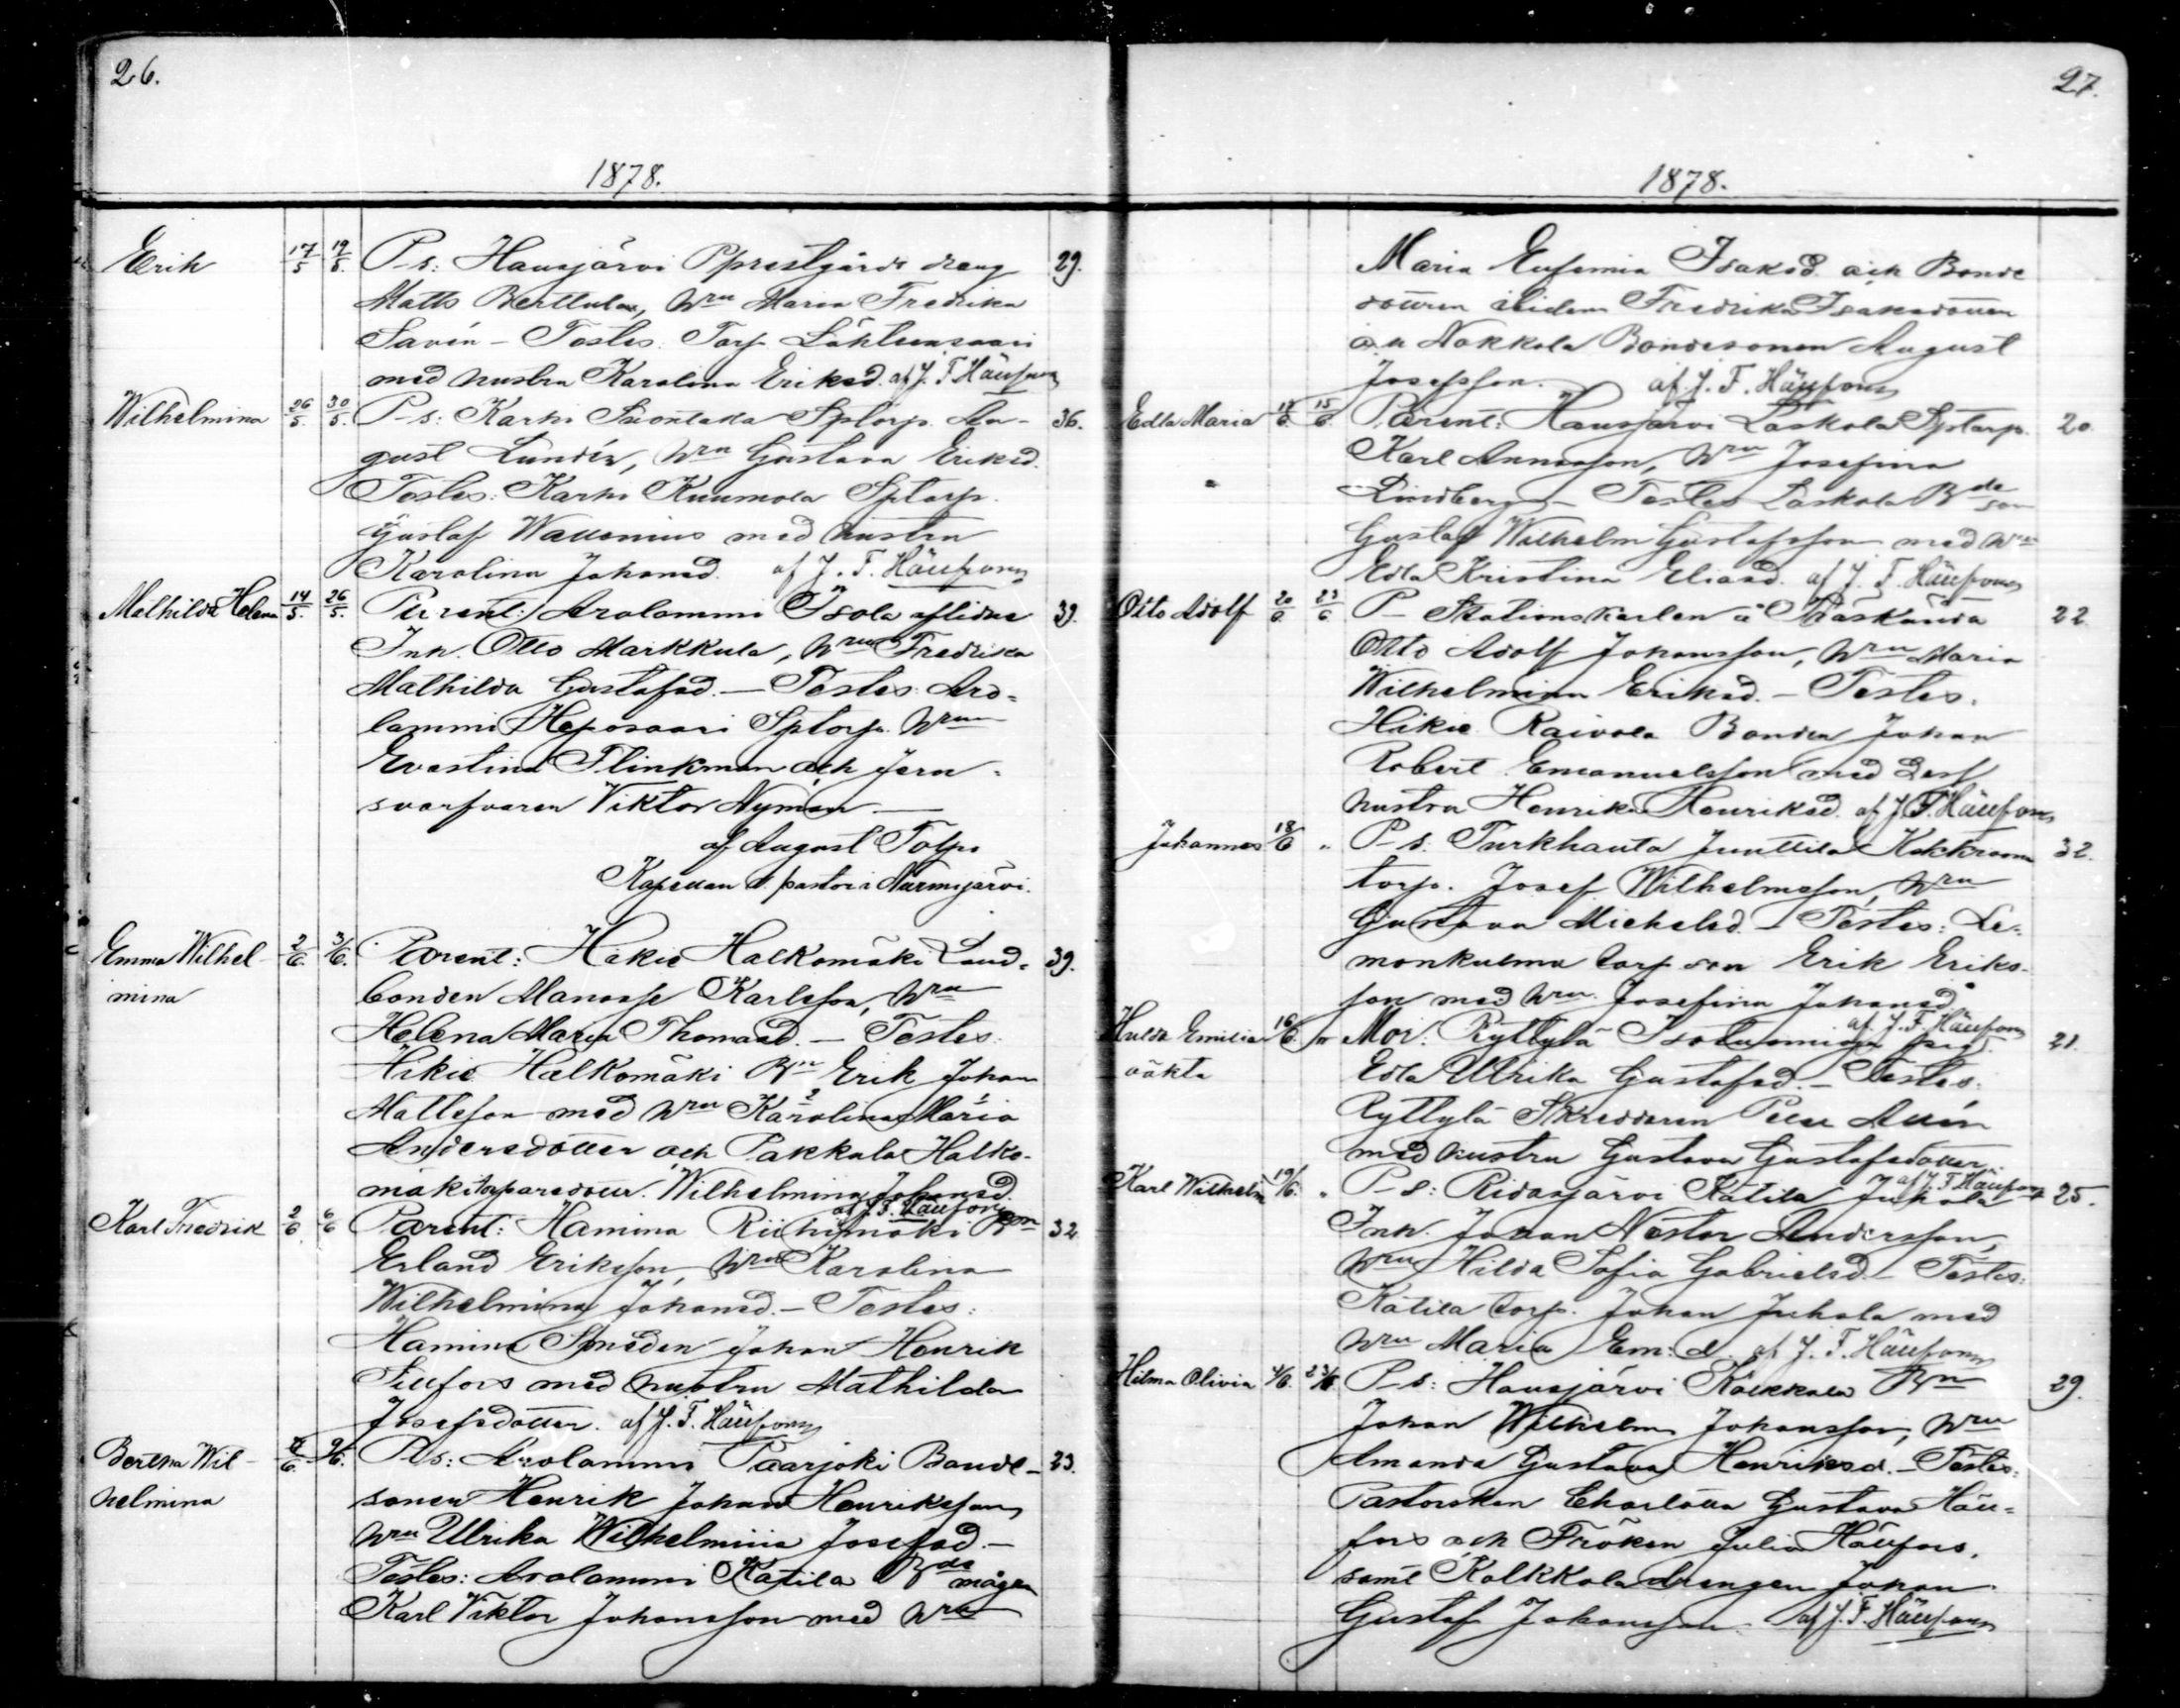 26.
1878.
Erik 17/5 19/5. P-s: Hausjärvi Pprestgårds dreng 29.
Matts Berttula, Hru Maria Fredrika
Savén - Testes. Torp.
med hustru Karolina Eriksd. af J. F. Hällfors
Wilhelmina 26/5. 30/5. P-s: Karhi Sptorp. Au- 36.
gust Lundén, Hru Gustava Eriksd.
Testes: Karhi Kuumola Sptorp.
Gustaf Wallenius med hustru
Karolina Johansd. af J. F. Hällfors
Mathilda Helena 14/5. 26/5. Parent: Arolammi Isola aflidne 39.
Inh. Otto Markkula, Hru Fredrika
Mathilda Gustafsd. - Testes: Aro-
lammi Heposaari Sptorp. Hru
Evastina Flinkman och Jern-
svarfvaren Viktor Nyman -
af August Tolpo
Kapellan o. pastor i Nurmijärvi.
Emma Wilhel- 2/6. 3/6. Parent: Hikie Halkomäki Land- 39.
mina bonden Manasse Karlsson, Hru
Helena Maria Thomasd. - Testes:
Hikie Halkomäki Bn Erik Johan
Mattsson med Hru Karolina Maria
Andersdotter och Pakkala Halko-
mäki torparedotter Wilhelmina Johansd.
af J. F. Hällfors
Karl Fredrik 2/6. 6/6 Parent: Hamina Riihimäki Bson 32.
Erland Eriksson, Hru Karolina
Wilhelmina Johansd. - Testes:
Hamina Smeden Johan Henrik
Sillfors med hustru Mathilda
Josefsdotter. af J. F. Hällfors
Bertha Wil- 6. 9/6. P-s: Arolammi Paarjoki Bonde- 23.
helmina sonen Henrik Johan Henriksson,
Hru Ulrika Wilhelmina Josefsd. -
Testes: Arolammi Katila Bde mågen
Karl Viktor Johansson med Hru
27.
1878.
Maria Eufemia Isaksd. och Bonde
dottren ibidem Fredrika Isaksdotter
o. u Nokkola Bondesonen August
Josefsson. af J. F. Hällfors
Edla Maria 15/6 Parent: Hausjärvi Laskola Sptorp. 20.
Karl Hru Josefina
Lindberg - Testes Laskola Bde son
Gustaf Wilhelm Gustafsson med Hru
Edla Kristina Eliasd. af J. F. Hällfors
Otto Adolf 20/6 23/6 P- Stationskarlen å Träskända 22.
Otto Adolf Johansson, Hru Maria
Wilhelmina Eriksd. - Testes.
Hikie Raivola Bonden Johan
Robert Emanuelsson med dess
hustru Henrika Henriksd. af J. F. Hällfors
Johannes 18/6 " P-s. Turkhauta Junttila 32.
torp. Josef Wilhelmsson, Hru
Gustava Michelsd. - Testes: Le-
monkulma torp son Erik Eriks-
son med Hru. Josefina Johansd.
af J. F. Hällfors
Hulda Emilia 16/6. " Mor: Ryttylä pig. 21.
oäkta Edla Ulrika Gustafsd. - Testes:
Ryttylä Skreddaren Allén
med hustru Gustava Gustafsdotter
af J. F. Hällfors
Karl Wilhelm 19/6. " P-s: Ridasjärvi Katila Juhola 25.
Inh. Johan Nestor Andersson,
Hru Hilda Sofia Gabrielsd. - Testes:
Katila torp. Johan Juhola med
Hru Maria Em:d. af J. F. Hällfors
Hilma Olivia 4/6. 23/6 P-s: Hausjärvi Kolkkala Bn 29.
Johan Wilhelm Johansson, Hru
Amanda Gustava Henriksd. - Testes:
Pastorskan Charlotta Gustava Häll-
fors och Fröken Julia Hällfors,
samt Kolkkala drengen Johan
Gustaf Johansson. af J. F. Hällfors